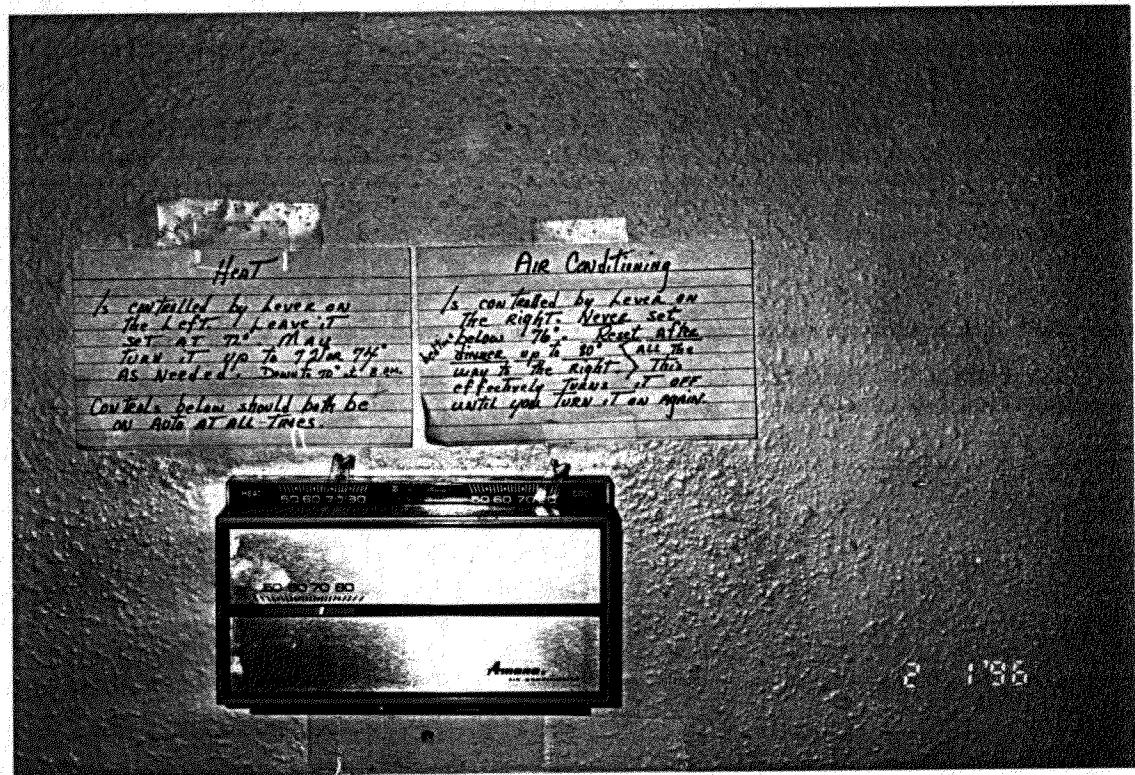 HEAT
Is controlled by Lever on
the Left. Leave it
set at 72°. May
turn it up to 72 or 74°
As Needed. Down to 70° at 8 P.M.
Controls below should both be
on Auto AT ALL TIMES.
AIR Conditioning
Is controlled by Lever on
the Right. Never set
below 76°. Reset after
dinner up to 80° } ALL the
way to the Right. } This
effectively turns it off
until you turn it on again.
HEAT 50 60 70 80
50 60 70 80 COOL
50 60 70 80
Amana
AIR CONDITIONING
2 1 '96